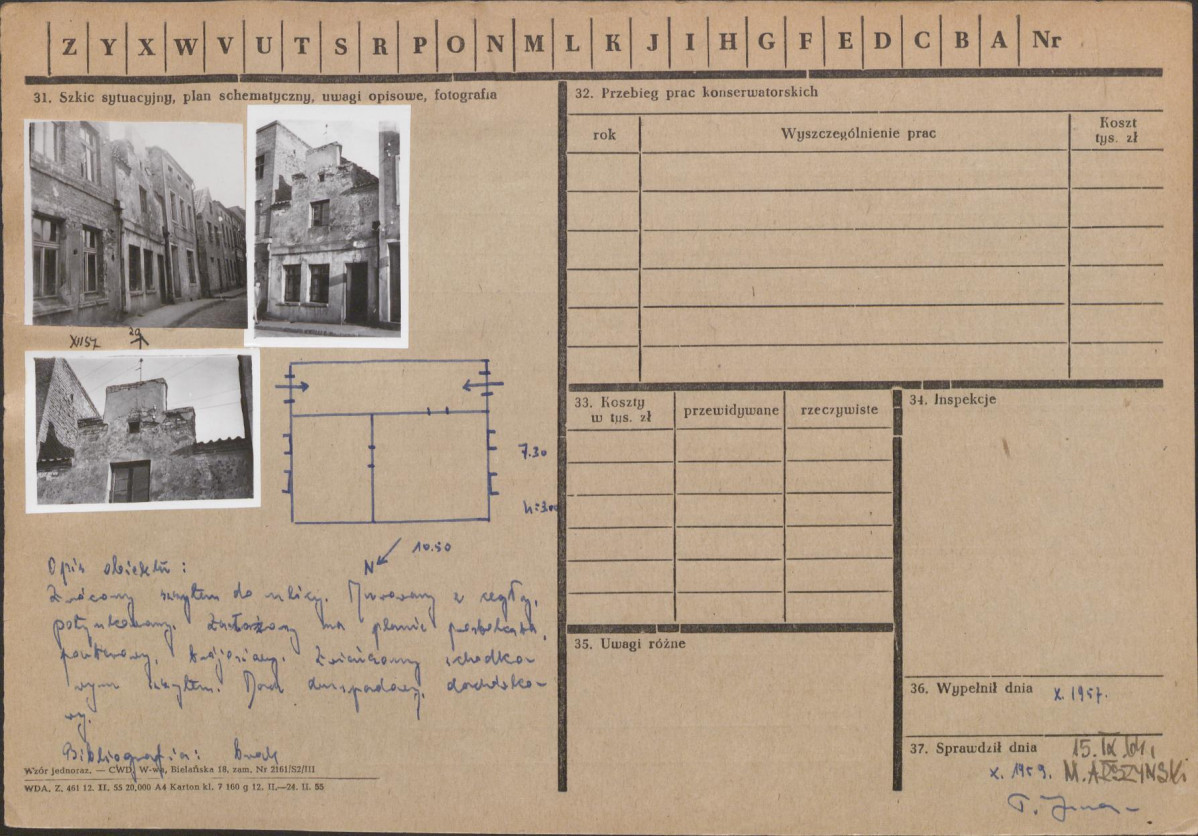 Z Y X W V U T S R P O N M L K J I H G F E D C B A Nr
31. Szkic sytuacyjny, plan schematyczny, uwagi opisowe, fotografia
XII57
29
7.30
h=3.00
10.50
N
Opis obiektu:
Zwrócony szczytem do ulicy. Murowany z cegły,
potynkowany. Założony na planie prostokąta,
parterowy, trójosiowy. Zwieńczony schodko-
wym szczytem. Dach dwuspadowy, dachówko-
wy.
Bibliografia: brak
Wzór jednoraz. — CWD, W-wa, Bielańska 18, zam. Nr 2161/S2/III
WDA. Z. 461 12. II. 55 20,000 A4 Karton kl. 7 160 g 12. II.—24. II. 55
32. Przebieg prac konserwatorskich
rok
Wyszczególnienie prac
Koszt
tys. zł
33. Koszty
w tys. zł
przewidywane
rzeczywiste
34. Inspekcje
35. Uwagi różne
36. Wypełnił dnia
X. 1957.
37. Sprawdził dnia
15. IX 64,
X. 1959.
M. ARSZYŃSKI